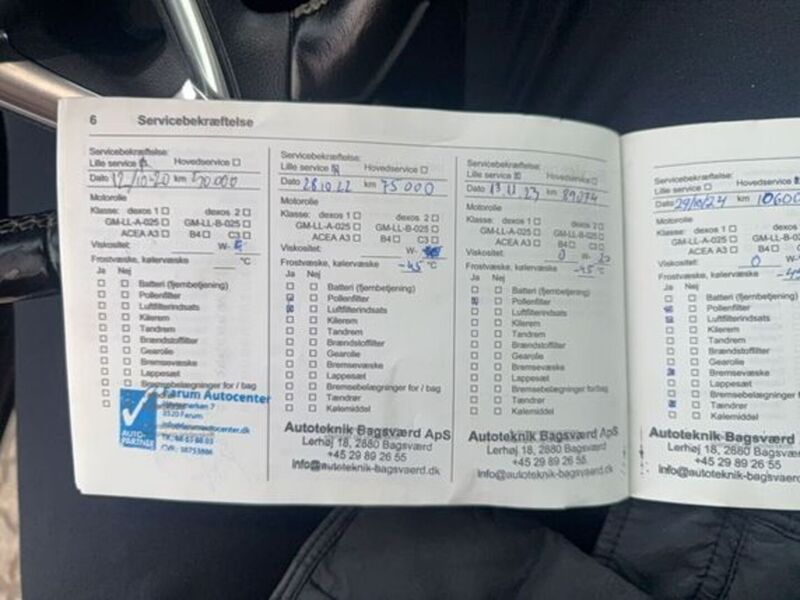 6 Servicebekræftelse
Servicebekræftelse:
Lille service Hovedservice
Dato 12/10-20 km 50.000
Motorolie
Klasse: dexos 1 dexos 2
GM-LL-A-025 GM-LL-B-025
ACEA A3 B4 C3
Viskositet: W-
Frostvæske, kølervæske °C
Ja Nej
Batteri (fjernbetjening)
Pollenfilter
Luftfilterindsats
Kilerem
Tandrem
Brændstoffilter
Gearolie
Bremsevæske
Lappesæt
Bremsebelægninger for / bag
Farum Autocenter
3520 Farum
AUTO-PARTNER
Servicebekræftelse:
Lille service Hovedservice
Dato 28 10 22 km 75 000
Motorolie
Klasse: dexos 1 dexos 2
GM-LL-A-025 GM-LL-B-025
ACEA A3 B4 C3
Viskositet: W-
Frostvæske, kølervæske -45 °C
Ja Nej
Batteri (fjernbetjening)
Pollenfilter
Luftfilterindsats
Kilerem
Tandrem
Brændstoffilter
Gearolie
Bremsevæske
Lappesæt
Bremsebelægninger for / bag
Tændrør
Kølemiddel
Autoteknik Bagsværd ApS
Lerhøj 18, 2880 Bagsværd
+45 29 89 26 55
info@autoteknik-bagsvaerd.dk
Servicebekræftelse:
Lille service Hovedservice
Dato 13 11 23 km 89074
Motorolie
Klasse: dexos 1 dexos 2
GM-LL-A-025 GM-LL-B-025
ACEA A3 B4 C3
Viskositet: 0 W- 20
Frostvæske, kølervæske -45 °C
Ja Nej
Batteri (fjernbetjening)
Pollenfilter
Luftfilterindsats
Kilerem
Tandrem
Brændstoffilter
Gearolie
Bremsevæske
Lappesæt
Bremsebelægninger for/bag
Tændrør
Kølemiddel
Autoteknik Bagsværd ApS
Lerhøj 18, 2880 Bagsværd
+45 29 89 26 55
info@autoteknik-bagsvaerd.dk
Servicebekræftelse:
Lille service Hovedservice
Dato 29/10/24 km 10600
Motorolie
Klasse: dexos 1 dexos 2
GM-LL-A-025 GM-LL-B-025
ACEA A3 B4 C3
Viskositet: 0 W-
Frostvæske, kølervæske
Ja Nej
Batteri (fjernbetjening)
Pollenfilter
Luftfilterindsats
Kilerem
Tandrem
Brændstoffilter
Gearolie
Bremsevæske
Lappesæt
Bremsebelægninger for
Tændrør
Kølemiddel
Autoteknik Bagsværd
Lerhøj 18, 2880 Bagsvær
+45 29 89 26 55
info@autoteknik-bagsvaerd